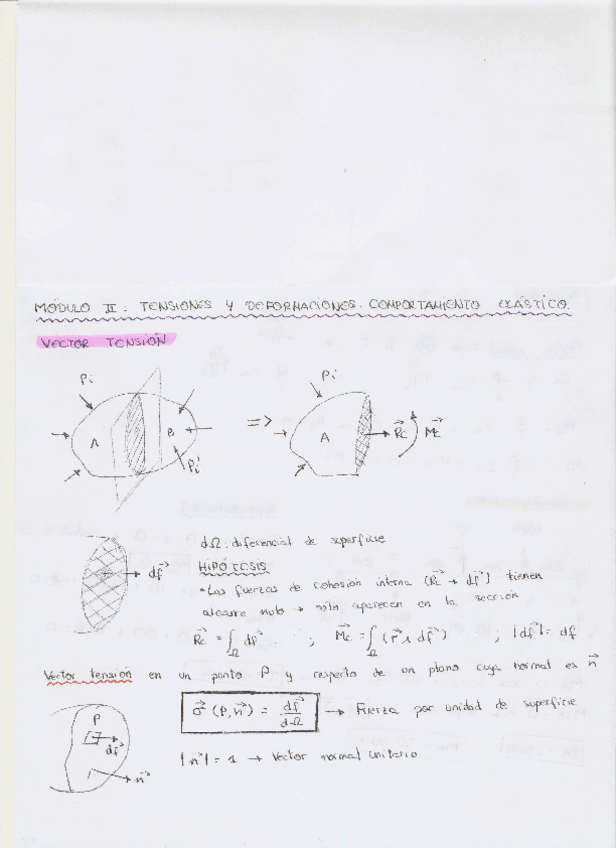 MÓDULO II: TENSIONES Y DEFORMACIONES. COMPORTAMIENTO ELÁSTICO.
VECTOR TENSIÓN
Pi
Pi
A
B
=>
A
R⃗c
M⃗c
Pi'
dΩ: diferencial de superficie
HIPÓTESIS
df⃗
• Las fuerzas de cohesión interna (R⃗c → df⃗) tienen
alcance nulo → sólo aparecen en la sección
R⃗c = ∫Ω df⃗ ; M⃗c = ∫Ω (r⃗ ∧ df⃗) ; |df⃗| = df
Vector tensión en un punto P y respecto de un plano cuya normal es n⃗
P
σ⃗ (P, n⃗) = df⃗/dΩ → Fuerza por unidad de superficie
df⃗
|n⃗| = 1 → Vector normal unitario
n⃗